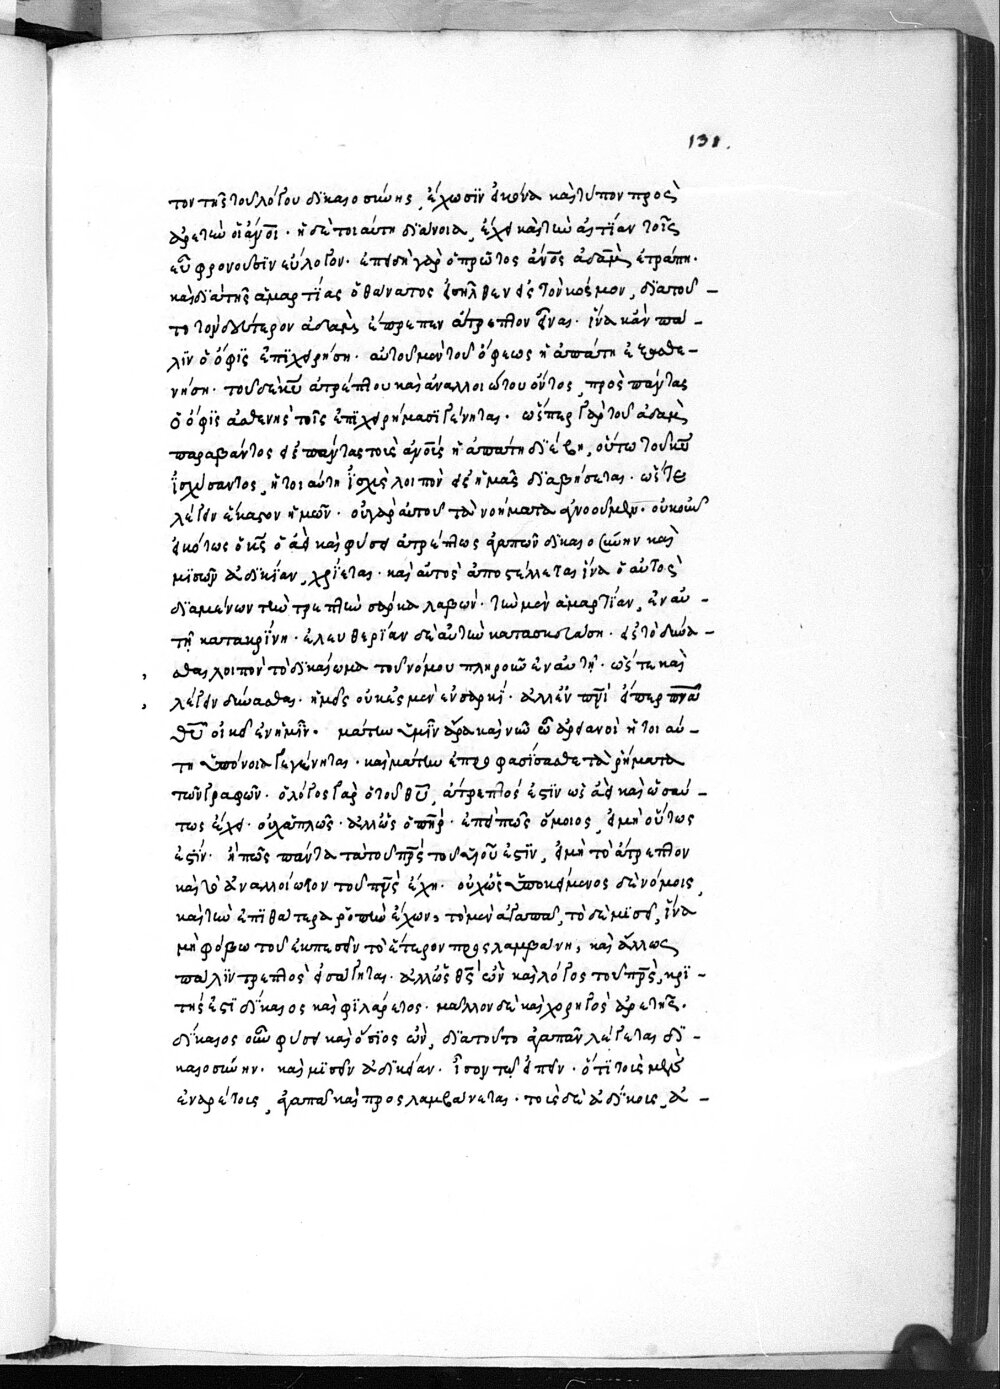 131.
τον τῆς τοῦ λόγου δϊκαιοσύνης, ἔχωσϊν εἰκόνα καὶ τύπον πρὸς
ἀρετὴν οἱ ἄνοι· ἡ δὲ τοιαύτη δϊάνοια, ἔχει καὶ τὴν αἰτΐαν τοῖς
εὖ φρονοῦσϊν εὔλογον· ἐπειδὴ γὰρ ὁ πρῶτος ἄνος ἀδὰμ ἐτράπη·
καὶ δϊὰ τῆς ἁμαρτΐας ὁ θάνατος εἰσῆλθεν εἰς τὸν κόσμον, δϊὰ τοῦ-
το τὸν δεύτερον ἀδὰμ ἔπρεπεν ἄτρεπτον εἶναι· ἵνα κἂν πά-
λϊν ὁ ὄφϊς ἐπϊχειρήση· αὐτοῦ μὲν τοῦ ὄφεως ἡ ἀπάτη ἐξασθε-
νήση· τοῦ δὲ κυ ἀτρέπτου καὶ ἀναλλοιώτου ὄντος, πρὸς πάντας
ὁ ὄφϊς ἀσθενὴς τοῖς ἐπϊχειρήμασϊ γένηται· ὥσπερ γὰρ τοῦ ἀδὰμ
παραβάντος εἰς πάντας τοὺς ἀνους ἡ ἀπάτη δϊέβη, οὕτω τοῦ κυ
ἰσχύσαντος, ἡ τοιαύτη ἰσχὺς λοιπὸν εἰς ἡμᾶς δϊαβήσεται· ὥστε
λέγειν ἕκαστον ἡμῶν· οὐ γὰρ αὐτοῦ τὰ νοήματα ἀγνοοῦμεν· οὐκοῦν
εἰκότως ὁ κς ὁ ἀεὶ καὶ φύσει ἀτρέπτως ἀγαπῶν δϊκαιοσύνην καὶ
μϊσῶν ἀδϊκΐαν, χρΐεται· καὶ αὐτὸς ἀποστέλλεται ἵνα ὁ αὐτὸς
δϊαμένων τὴν τρεπτὴν σάρκα λαβών· τὴν μὲν ἁμαρτΐαν, ἐν αὐ-
τῆ κατακρΐνη· ἐλευθερΐαν δὲ αὐτὴν κατασκευάση· εἰς τὸ δύνα-
σθαι λοιπὸν τὸ δϊκαίωμα τοῦ νόμου πληροῦν ἐν αὐτῆ· ὥστε καὶ
λέγειν δύνασθαι· ἡμεῖς οὐκ ἐσμὲν ἐν σαρκὶ· ἀλλ' ἐν πνι· εἴπερ πνα
θυ οἰκεῖ ἐν ἡμῖν· μάτην ὑμῖν ἄρα καὶ νῦν ὦ ἀρειανοὶ ἡ τοιαύ-
τη ὑπόνοια γεγένηται· καὶ μάτην ἐπροφασίσασθε τὰ ῥήματα
τῶν γραφῶν· ὁ λόγος γὰρ ὁ τοῦ θυ, ἄτρεπτός ἐστϊν ὡς ἀεὶ καὶ ὡσαύ-
τως ἔχει· οὐχ ἁπλῶς· ἀλλ' ὡς ὁ πηρ· ἐπεὶ πῶς ὅμοιος, εἰ μὴ οὕτως
ἐστΐν· ἢ πῶς πάντα τὰ τοῦ πρς τοῦ υἱοῦ ἐστϊν, εἰ μὴ τὸ ἄτρεπτον
καὶ τὸ ἀναλλοίωτον τοῦ πρς ἔχη· οὐχ ὡς ὑποκείμενος δὲ νόμοις,
καὶ τὴν ἐπϊ θάτερα ῥοπὴν ἔχων, τὸ μὲν ἀγαπᾶ, τὸ δὲ μϊσεῖ, ἵνα
μὴ φόβω τοῦ ἐκπεσεῖν τὸ ἕτερον προσλαμβάνη, καὶ ἄλλως
πάλϊν τρεπτὸς εἰσάγηται· ἀλλ' ὡς θς ὢν καὶ λόγος τοῦ πρς, κρϊ-
τής ἐστϊ δΐκαιος καὶ φϊλάρετος· μᾶλλον δὲ καὶ χορηγὸς ἀρετῆς·
δΐκαιος οὖν φύσει καὶ ὅσϊος ὢν, δϊὰ τοῦτο ἀγαπᾶν λέγεται δϊ-
καιοσύνην· καὶ μϊσεῖν ἀδϊκίαν· ἴσον τῷ εἰπεῖν· ὅτϊ τοὺς μὲν
ἐναρέτους, ἀγαπᾶ καὶ προσλαμβάνεται· τοὺς δὲ ἀδΐκους, ἀ-